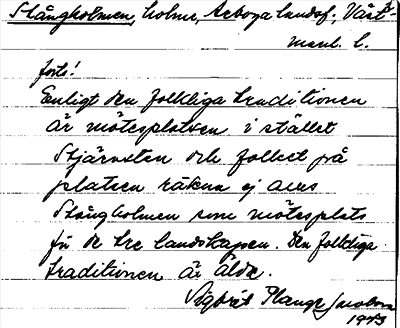 Stångholmen, holme, Arboga landsf., Väst-
manl. l.
forts!
Enligt den folkliga traditionen
är mötesplatsen i stället
Stjärnsten och folket på
platsen räkna ej alls
Stångholmen som mötesplats
för de tre landskapen. Den folkliga
traditionen är äldre.
Sigbrit Plange Jacobson
1943